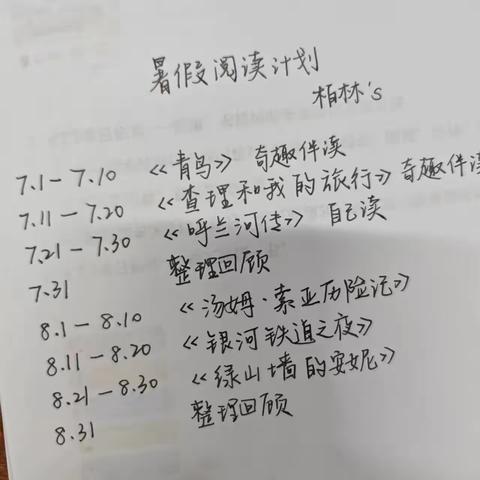 暑假阅读计划
柏林's
7.1-7.10 《青鸟》 奇趣伴读
7.11-7.20 《查理和我的旅行》奇趣伴读
7.21-7.30 《呼兰河传》 自己读
7.31 整理回顾
8.1-8.10 《汤姆·索亚历险记》
8.11-8.20 《银河铁道之夜》
8.21-8.30 《绿山墙的安妮》
8.31 整理回顾